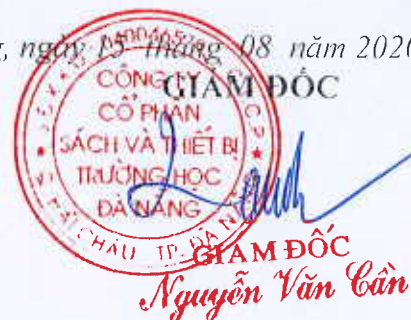 ngày 15 tháng 08 năm 2020
GIÁM ĐỐC
CÔNG TY
CỔ PHẦN
SÁCH VÀ THIẾT BỊ
TRƯỜNG HỌC
ĐÀ NẴNG
HẢI CHÂU TP. ĐÀ N
GIÁM ĐỐC
Nguyễn Văn Cần